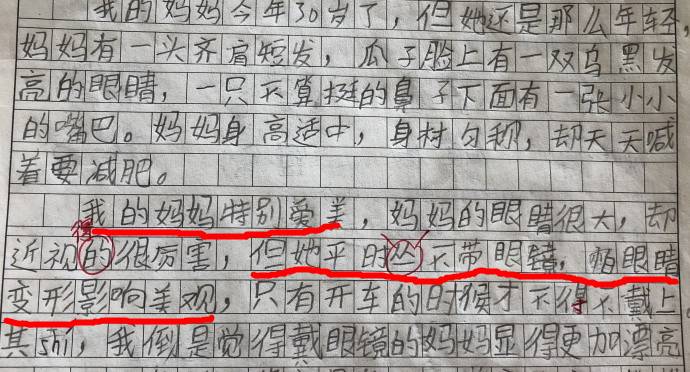 我的妈妈今年30岁了，但她还是那么年轻，
妈妈有一头齐肩短发，瓜子脸上有一双乌黑发
高的眼睛，一只不算挺的鼻子下面有一张小小
的嘴巴。妈妈身高适中，身材匀称，却天天喊
着要减肥。
我的妈妈特别爱美，妈妈的眼睛很大，却
得
近视的很厉害，但她平时从不带眼镜，怕眼睛
变形影响美观，只有开车的时候才不得不戴上
其shí，我倒是觉得戴眼镜的妈妈显得更加漂亮